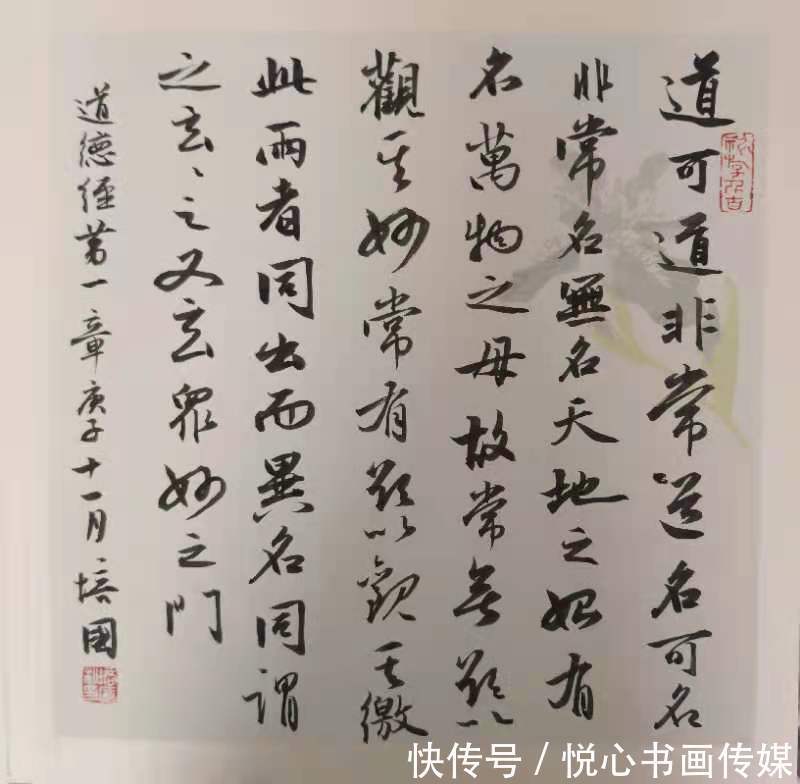 道可道非常道名可名
非常名無名天地之始有
名萬物之母故常無欲以
觀其妙常有欲以觀其徼
此兩者同出而異名同謂
之玄〻之又玄眾妙之門
道德經第一章庚子十一月培國
快传号 / 悦心书画传媒